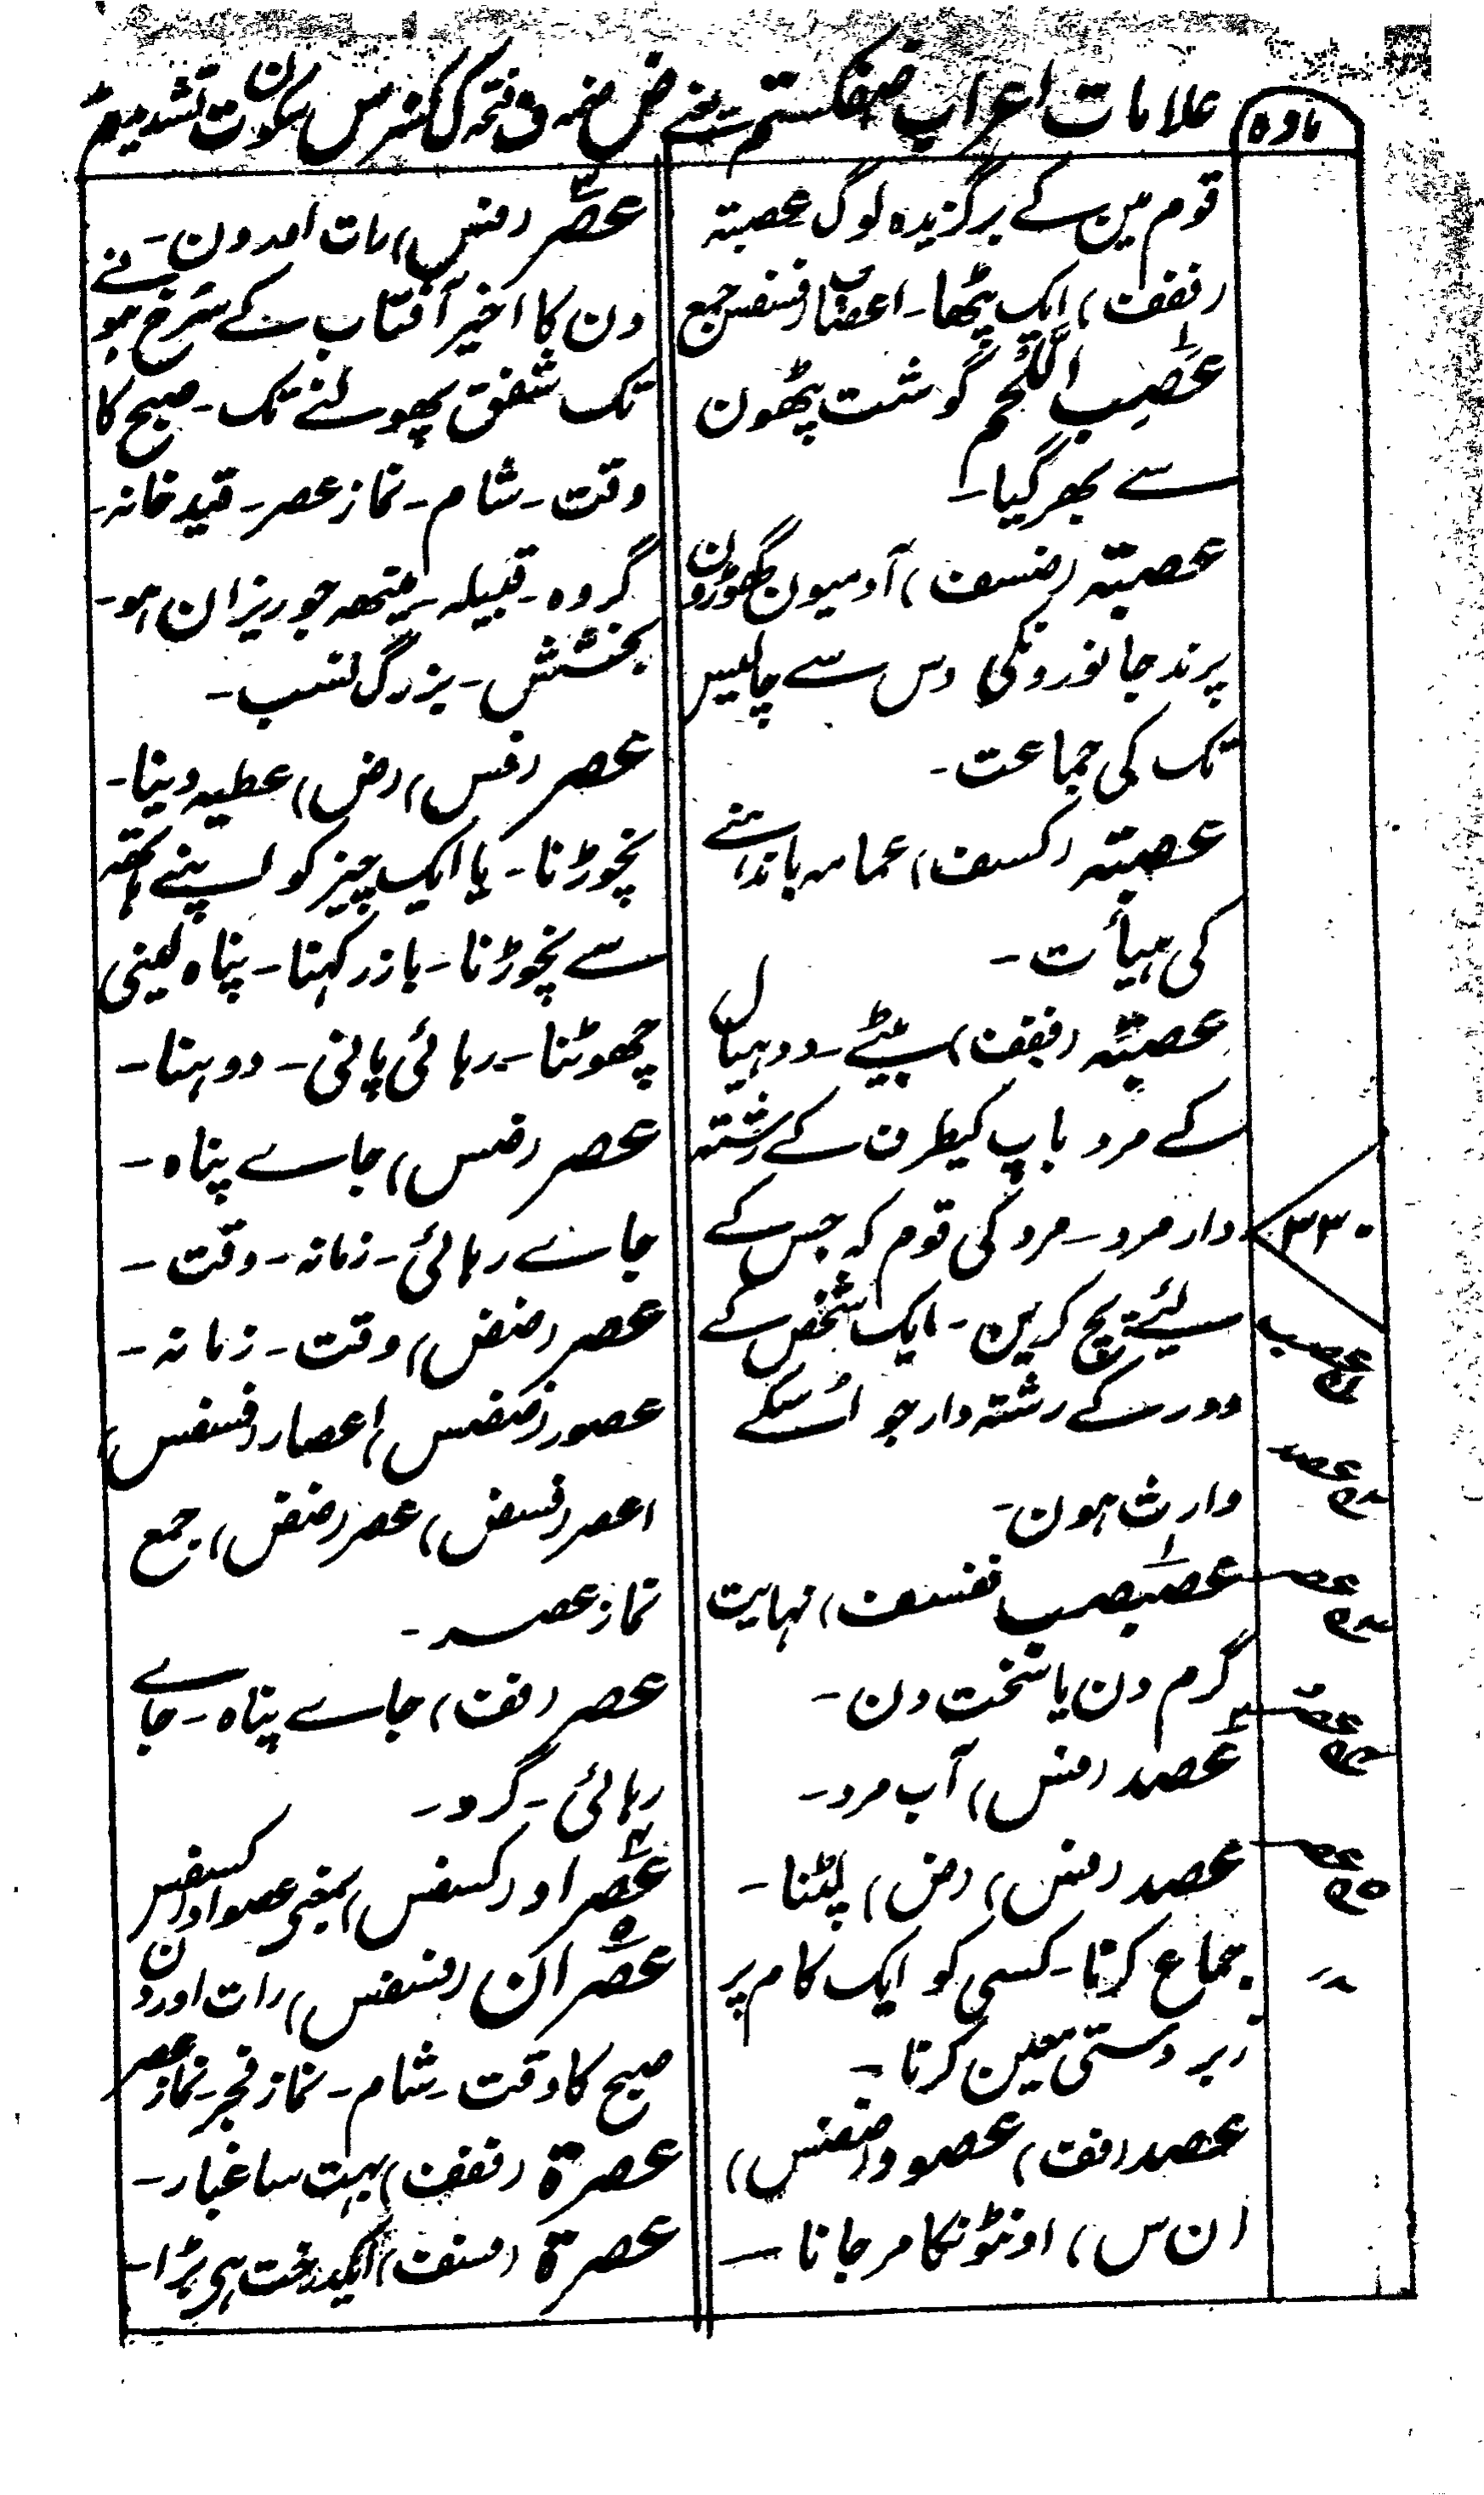 مادہ
علامات اعراب ضفکستم یعنے ض ضمہ ف فتحہ ک کسرس سکون ت تشدید م
قوم مین کے برگزیدہ لوگ عصبتہ
(نففت) ایک پٹھا۔ اعصاب (فسفس جمع
عَصِبَ اللَّحْم گوشت پٹھون
سے بھر گیا۔
عصبتہ (ضسف) آدمیون گھوڑون
پرند جانورونکی دس سے چالیس
تک کی جماعت۔
عصبتہ (کسف) عمامہ باندہنے
کی ہیأت۔
عصبتہ (ففف) بیٹے۔ ددہیال
کے مرد باپ کیطرف کے رشتہ
دار مرد۔ مرد کی قوم کہ جس کے
لئے پچ کرین۔ ایک شخص کے
دور کے رشتہ دار جو اُسکے
وارث ہون۔
عصبصب (فسف) نہایت
گرم دن یا سخت دن۔
عصد (فس) آب مرد۔
عصد (فس) (ض) لپٹنا۔
جماع کرنا۔ کسی کو ایک کام پر
زبردستی متعین کرنا۔
عصد (فف) عصود (ضفس)
(ن س) اونٹونکا مر جانا۔
۳۳۰
عصب
عصد
عصر
عصر (فس) رات اور دن۔
دن کا اخیر آفتاب کے سرخ ہونے
تک شفق پھولنے تک۔ صبح کا
وقت۔ شام۔ نماز عصر۔ قید خانہ۔
گروہ۔ قبیلہ۔ مینھہ جو ریزان ہو۔
بخشش۔ بزرگ نسب۔
عصر (فس) (ض) عطیہ دینا۔
نچوڑنا۔ یا ایک چیز کو اپنے ہاتھہ
سے نچوڑنا۔ باز رکہنا۔ پناہ لینی
چھوٹنا۔ رہائی پانی۔ دوہنا۔
عصر (ضس) جاے پناہ۔
جاے رہائی۔ زمانہ۔ وقت۔
عصر (ضض) وقت۔ زمانہ۔
عصور (ضفس) اعصار (فسفس)
اعصر (فسض) عصر (ضض) جمع
نماز عصر۔
عصر (فف) جاے پناہ۔ جاے
رہائی۔ گرد۔
عصراو (کسفس) بمعنی عصواد (کسفس
عصران (فسفس) رات اور دن
صبح کا وقت۔ شام۔ نماز فجر۔ نماز عصر
عصرة (ففف) بہت سا غبار۔
عصرة (فسف) ایکدرخت ہی بڑا۔